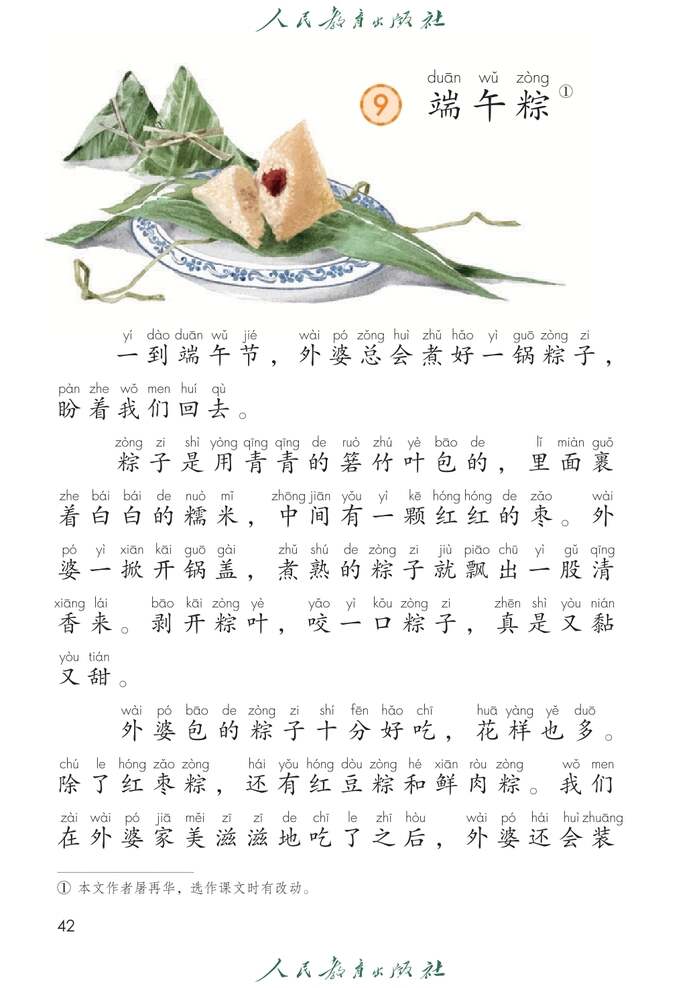 人民教育出版社
duān wǔ zòng
9 端午粽①
yí dào duān wǔ jié wài pó zǒng huì zhǔ hǎo yì guō zòng zi
一到端午节，外婆总会煮好一锅粽子，
pàn zhe wǒ men huí qù
盼着我们回去。
zòng zi shì yòng qīng qīng de ruò zhú yè bāo de lǐ miàn guǒ
粽子是用青青的箬竹叶包的，里面裹
zhe bái bái de nuò mǐ zhōng jiān yǒu yì kē hóng hóng de zǎo wài
着白白的糯米，中间有一颗红红的枣。外
pó yì xiān kāi guō gài zhǔ shú de zòng zi jiù piāo chū yì gǔ qīng
婆一掀开锅盖，煮熟的粽子就飘出一股清
xiāng lái bāo kāi zòng yè yǎo yì kǒu zòng zi zhēn shì yòu nián
香来。剥开粽叶，咬一口粽子，真是又黏
yòu tián
又甜。
wài pó bāo de zòng zi shí fēn hǎo chī huā yàng yě duō
外婆包的粽子十分好吃，花样也多。
chú le hóng zǎo zòng hái yǒu hóng dòu zòng hé xiān ròu zòng wǒ men
除了红枣粽，还有红豆粽和鲜肉粽。我们
zài wài pó jiā měi zī zī de chī le zhī hòu wài pó hái huì zhuāng
在外婆家美滋滋地吃了之后，外婆还会装
① 本文作者屠再华，选作课文时有改动。
42
人民教育出版社